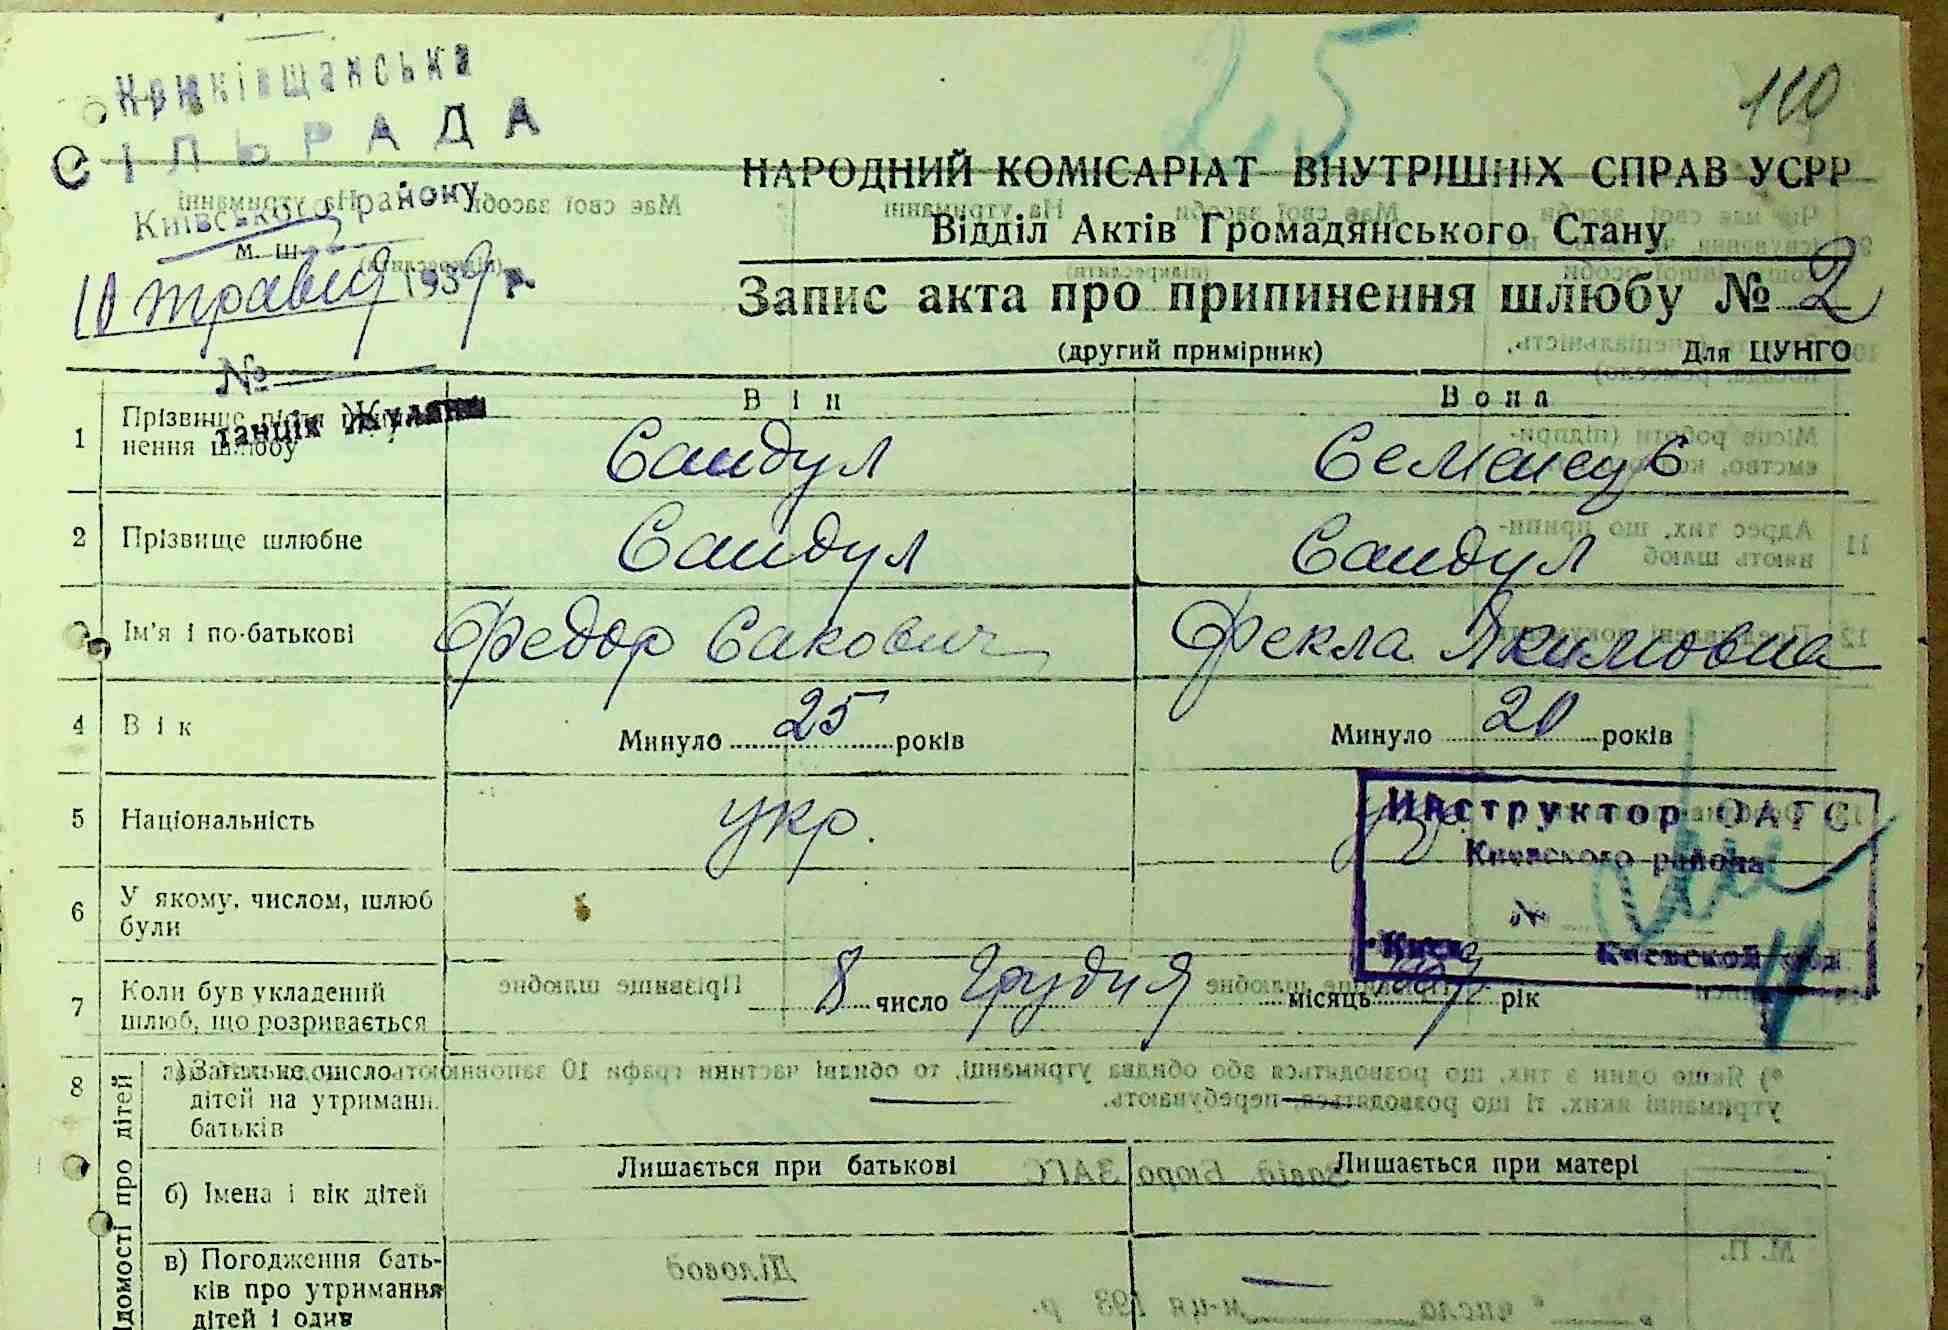 25
110
Крюківщанська
СІЛЬРАДА
Київського району
10 травня 1939 р.
№
станція Жуляни
НАРОДНИЙ КОМІСАРІАТ ВНУТРІШНІХ СПРАВ УСРР
Відділ Актів Громадянського Стану
Запис акта про припинення шлюбу № 2
(другий примірник) Для ЦУНГО
Він Вона
1 Прізвище після нення шлюбу Сандул
2 Прізвище шлюбне Сандул Сандул
3 Ім'я і по-батькові Федор Сакович Фекла Якимовна
4 Вік Минуло 25 років Минуло 20 років
5 Національність укр. укр.
Инструктор ОАГС
Киевского района
№
Киев Киевской обл.
6 У якому, числом, шлюб
були
7 Коли був укладений
шлюб, що розривається 8 число Грудня місяць рік
8 Відомості про дітей
а) Загальне число
дітей на утриманн.
батьків
Лишається при батькові Лишається при матері
б) Імена і вік дітей
в) Погодження бать-
ків про утримання
дітей і один